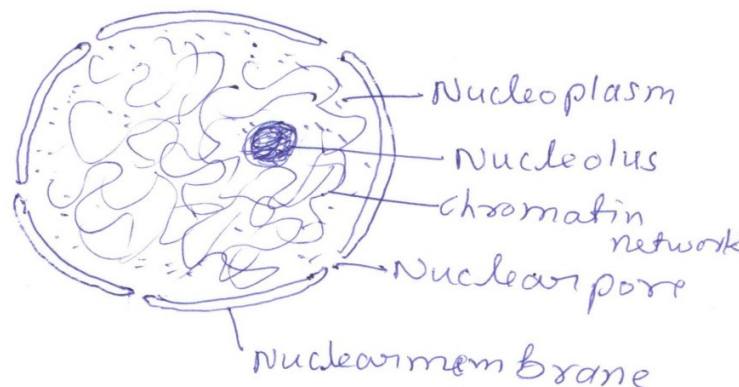 Nucleoplasm
Nucleolus
chromatin
network
Nuclear pore
Nuclear membrane